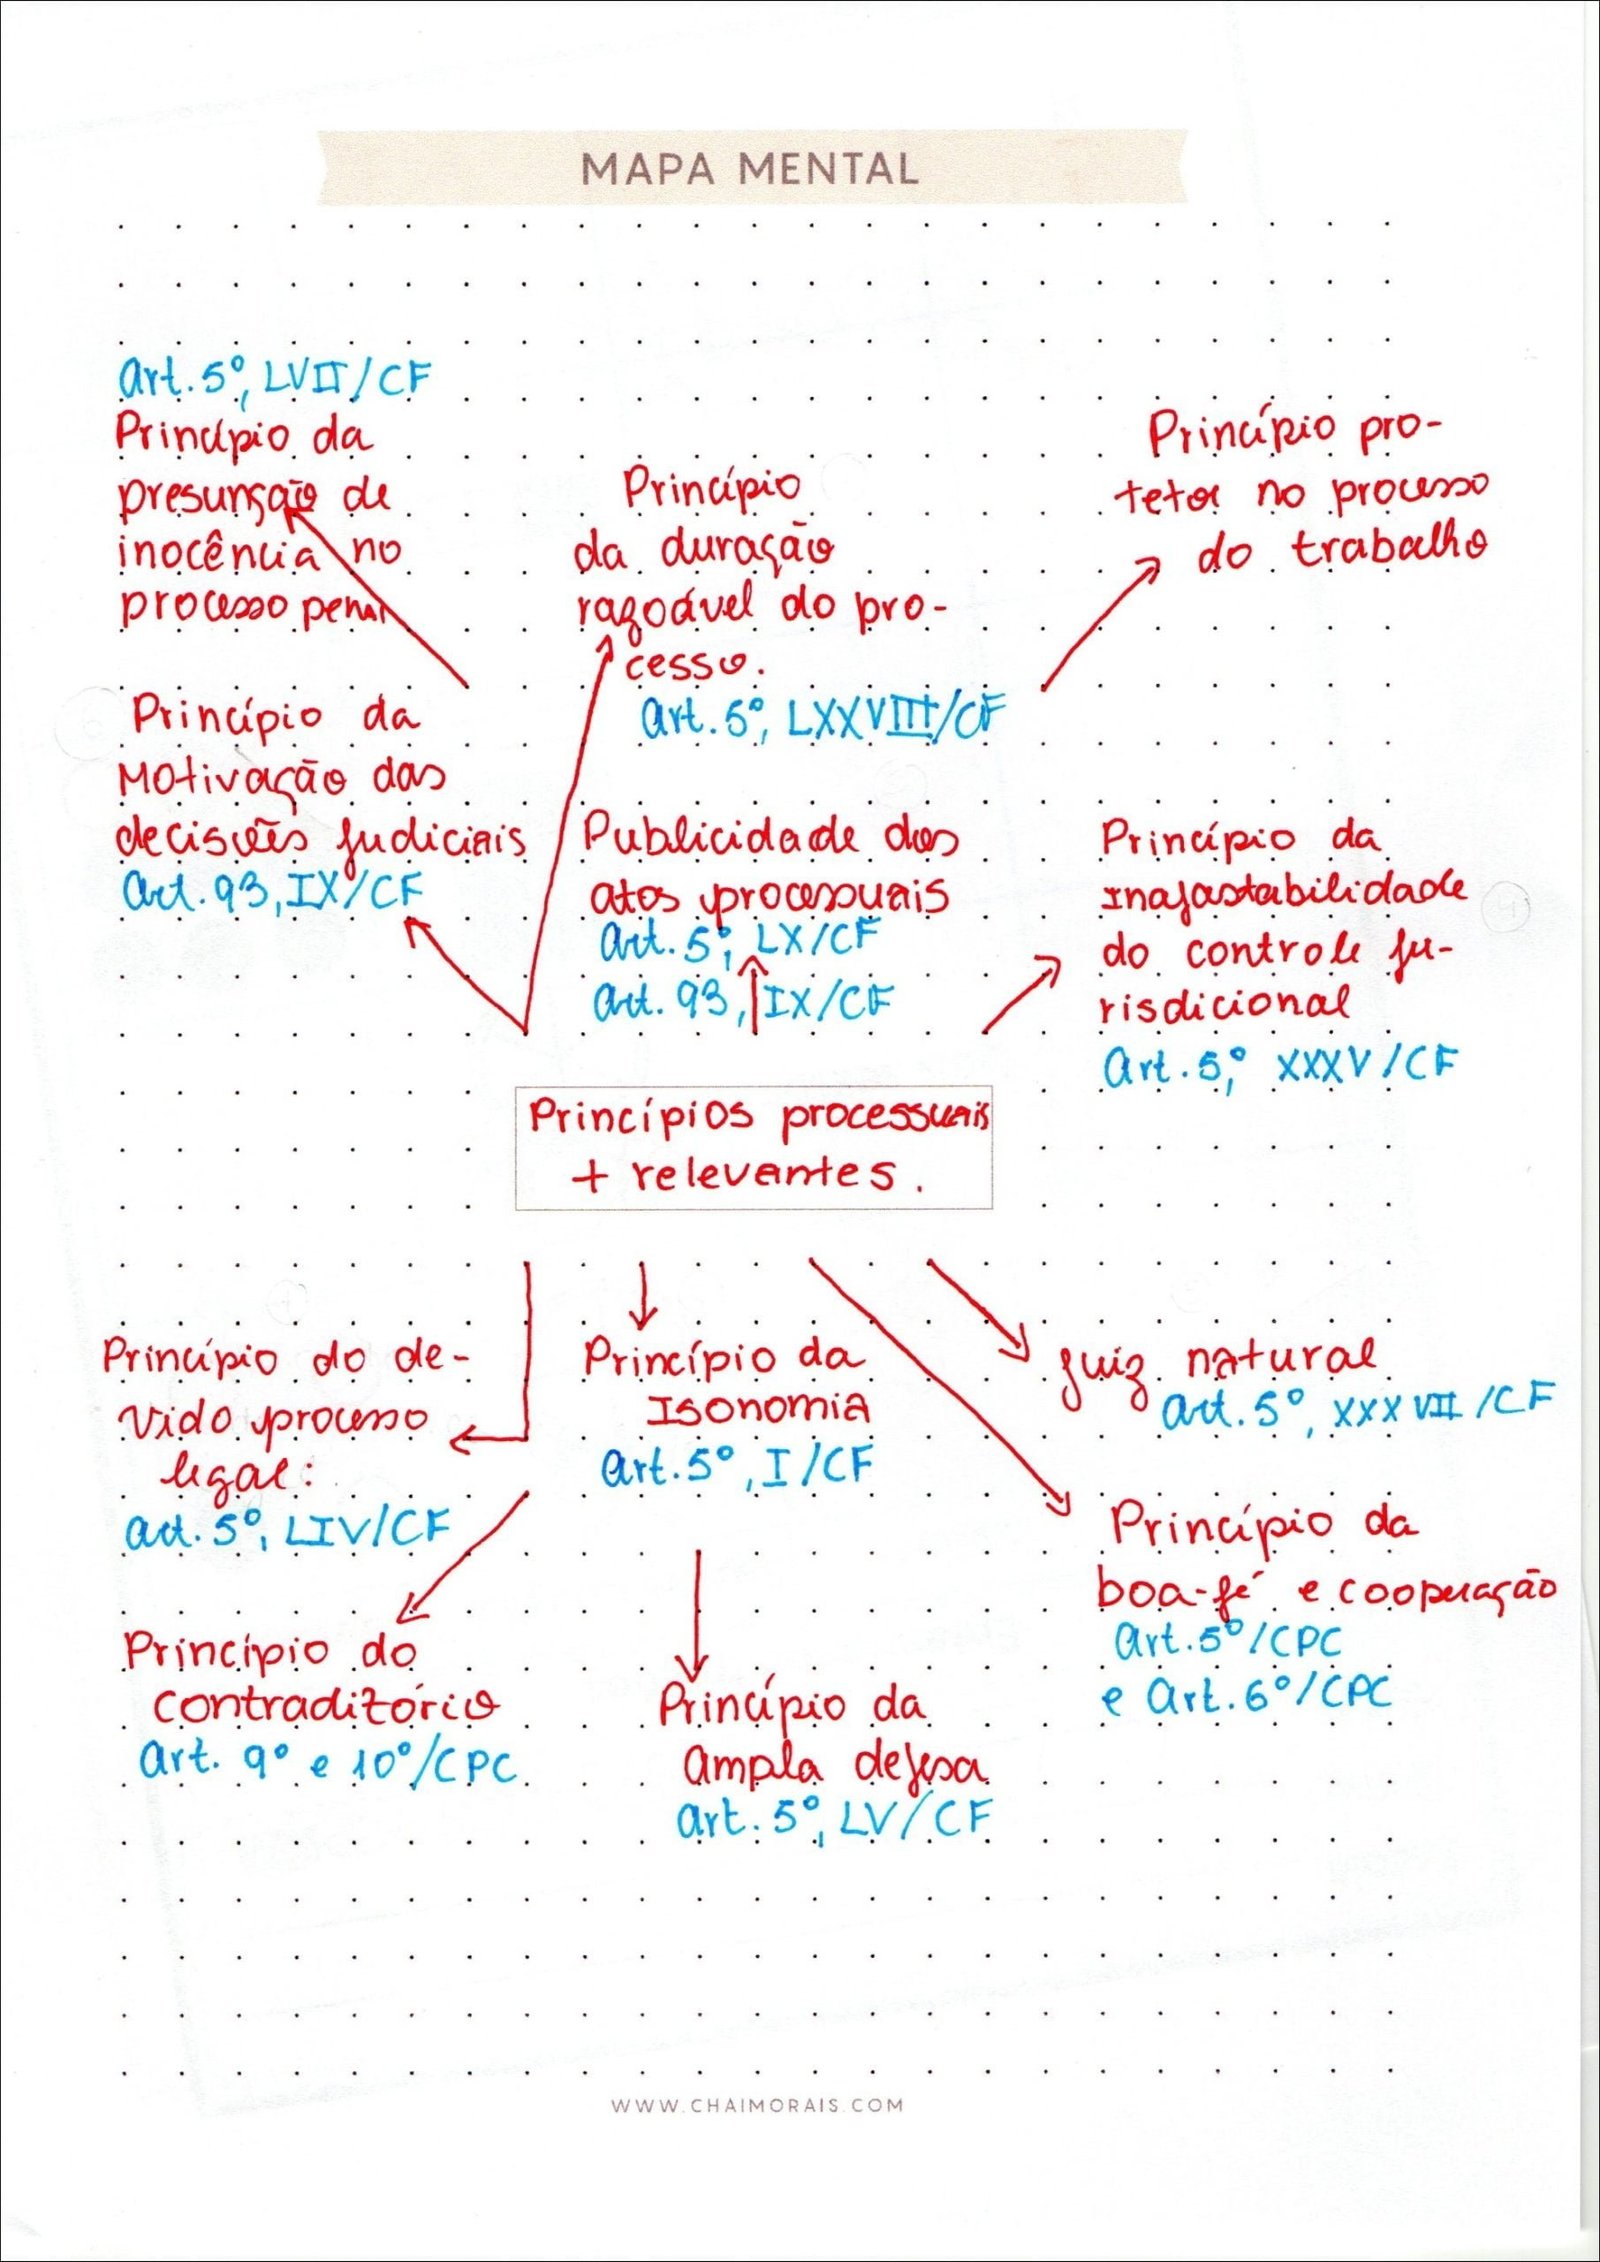 MAPA MENTAL
Art. 5º, LVII/CF
Princípio da
presunção de
inocência no
processo penal
Princípio
da duração
razoável do pro-
cesso.
Art. 5º, LXXVIII/CF
Princípio pro-
tetor no processo
do trabalho
Princípio da
Motivação das
decisões judiciais
Art. 93, IX/CF
Publicidade dos
atos processuais
Art. 5º, LX/CF
Art. 93, IX/CF
Princípio da
Inafastabilidade
do controle ju-
risdicional
Art. 5º, XXXV/CF
Princípios processuais
+ relevantes.
Princípio do de-
vido processo
legal:
Art. 5º, LIV/CF
Princípio da
Isonomia
Art. 5º, I/CF
Juiz natural
Art. 5º, XXXVII/CF
Princípio da
boa-fé e cooperação
Art. 5º/CPC
e Art. 6º/CPC
Princípio do
contraditório
Art. 9º e 10º/CPC
Princípio da
Ampla defesa
Art. 5º, LV/CF
WWW.CHAIMORAIS.COM